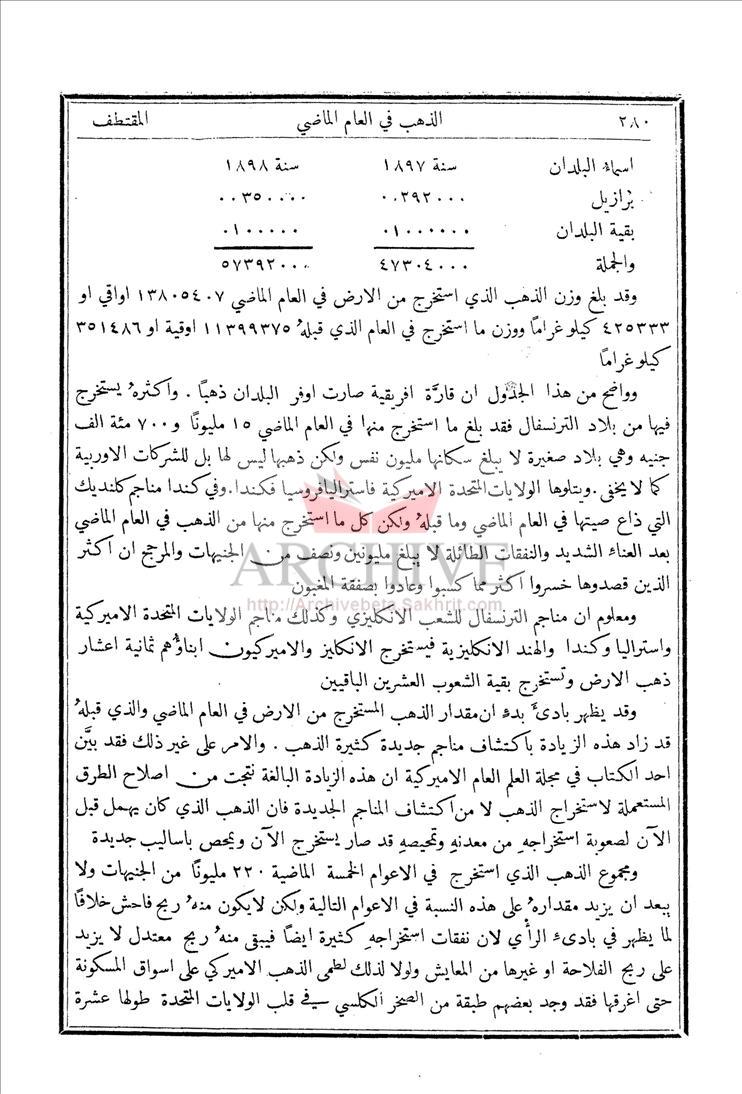 ٢٨٠ الذهب في العام الماضي المقتطف
اسماء البلدان سنة ١٨٩٧ سنة ١٨٩٨
برازيل ٠٠٣٩٢٠٠٠ ٠٠٣٥٠٠٠٠
بقية البلدان ٠١٠٠٠٠٠٠ ٠١٠٠٠٠٠٠
والجملة ٤٧٣٠٤٠٠٠ ٥٧٣٩٢٠٠٠
وقد بلغ وزن الذهب الذي استخرج من الارض في العام الماضي ١٣٨٠٥٤٠٧ اواقي او
٤٢٥٣٣٣ كيلوغراماً ووزن ما استخرج في العام الذي قبلهُ ١١٣٩٩٣٧٥ اوقية او ٣٥١٤٨٦
كيلوغراماً
وواضح من هذا الجدول ان قارَّة افريقية صارت اوفر البلدان ذهباً . واكثرهُ يستخرج
فيها من بلاد الترنسفال فقد بلغ ما استخرج منها في العام الماضي ١٥ مليونًا و٧٠٠ مئة الف
جنيه وهي بلاد صغيرة لا يبلغ سكانها مليون نفس ولكن ذهبها ليس لها بل للشركات الاوربية
كما لا يخفى . ويتلوها الولايات المتحدة الاميركية فاستراليا فروسيا فكندا . وفي كندا مناجم كلنديك
التي ذاع صيتها في العام الماضي وما قبلهُ ولكن كل ما استخرج منها من الذهب في العام الماضي
بعد العناء الشديد والنفقات الطائلة لا يبلغ مليونين ونصف من الجنيهات والمرجح ان اكثر
الذين قصدوها خسروا اكثر مما كسبوا وعادوا بصفقة المغبون
ARCHIVE
http://Archivebeta.Sakhrit.com
ومعلوم ان مناجم الترنسفال للشعب الانكليزي وكذلك مناجم الولايات المتحدة الاميركية
واستراليا وكندا والهند الانكليزية فيستخرج الانكليز والاميركيون ابناؤهم ثمانية اعشار
ذهب الارض وتستخرج بقية الشعوب العشرين الباقيين
وقد يظهر بادىَ بدءٍ ان مقدار الذهب المستخرج من الارض في العام الماضي والذي قبلهُ
قد زاد هذه الزيادة باكتشاف مناجم جديدة كثيرة الذهب . والامر على غير ذلك فقد بيَّن
احد الكتاب في مجلة العلم العام الاميركية ان هذه الزيادة البالغة نتجت من اصلاح الطرق
المستعملة لاستخراج الذهب لا من اكتشاف المناجم الجديدة فان الذهب الذي كان يهمل قبل
الآن لصعوبة استخراجهِ من معدنهِ وتمحيصهِ قد صار يستخرج الآن ويمحص باساليب جديدة
ومجموع الذهب الذي استخرج في الاعوام الخمسة الماضية ٢٢٠ مليونًا من الجنيهات ولا
يبعد ان يزيد مقدارهُ على هذه النسبة في الاعوام التالية ولكن لا يكون منهُ ربح فاحش خلافًا
لما يظهر في بادىء الرأي لان نفقات استخراجهِ كثيرة ايضاً فيبقى منهُ ربح معتدل لا يزيد
على ربح الفلاحة او غيرها من المعايش ولولا ذلك لطمى الذهب الاميركي على اسواق المسكونة
حتى اغرقها فقد وجد بعضهم طبقة من الصخر الكلسي في قلب الولايات المتحدة طولها عشرة